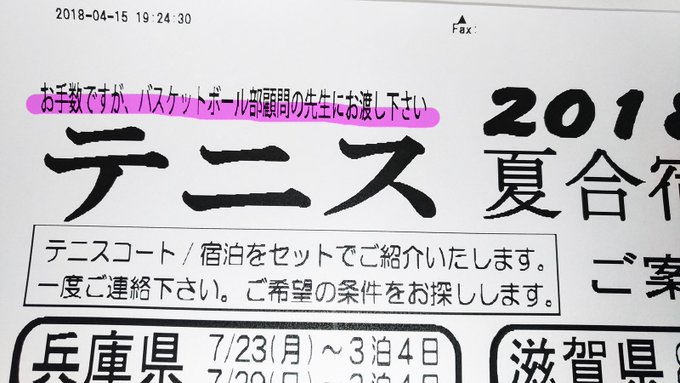 2018-04-15 19:24:30
Fax:
お手数ですが、バスケットボール部顧問の先生にお渡し下さい
2018
テニス 夏合宿
テニスコート/宿泊をセットでご紹介いたします。
一度ご連絡下さい。ご希望の条件をお探しします。
ご案
兵庫県 7/23(月)~3泊4日
滋賀県